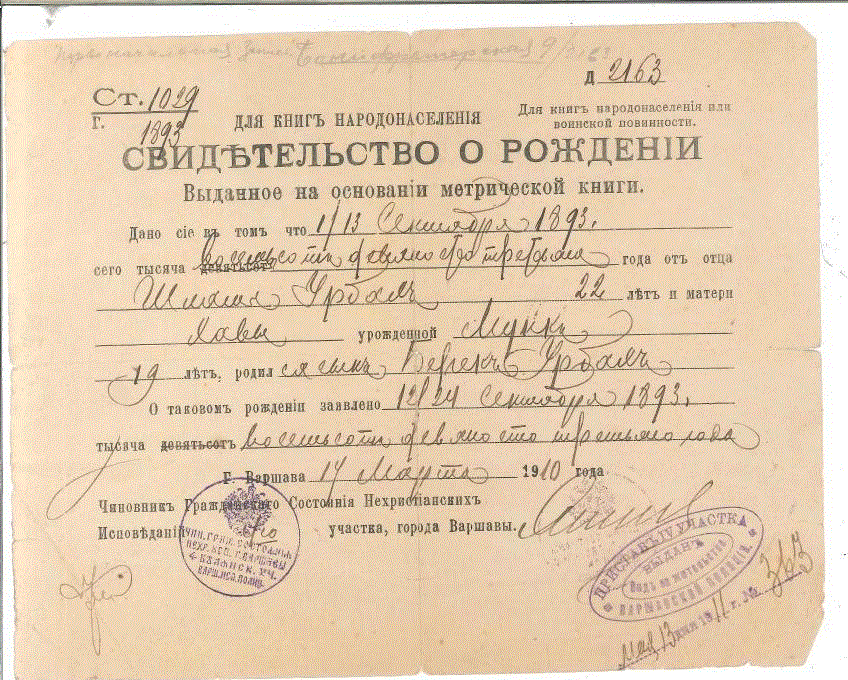 Д 2163
Ст. 1029
Г. 1893
ДЛЯ КНИГЪ НАРОДОНАСЕЛЕНІЯ
Для книгъ народонаселенія или
воинской повинности.
СВИДѢТЕЛЬСТВО О РОЖДЕНІИ
Выданное на основаніи метрической книги.
Дано сіе въ томъ что 1/13 Сентября 1893.
сего тысяча девятьсотъ восемьсотъ девяносто третьяго года отъ отца
Урбахъ 22 лѣтъ и матери
Хавы урожденной
19 лѣтъ, родился сынъ Берекъ Урбахъ
О таковомъ рожденіи заявлено 12/24 Сентября 1893.
тысяча девятьсотъ восемьсотъ девяносто третьяго года
Г. Варшава 14 Марта 1910 года
Чиновник Гражданскаго Состоянія Нехристіанскихъ
Исповѣданій участка, города Варшавы.
ПРИСТАВЪ IV УЧАСТКА
ВЫДАНЪ
Видъ на жительство
ВАРШАВСКОЙ ПОЛИЦІИ
13 1911 г. № 363